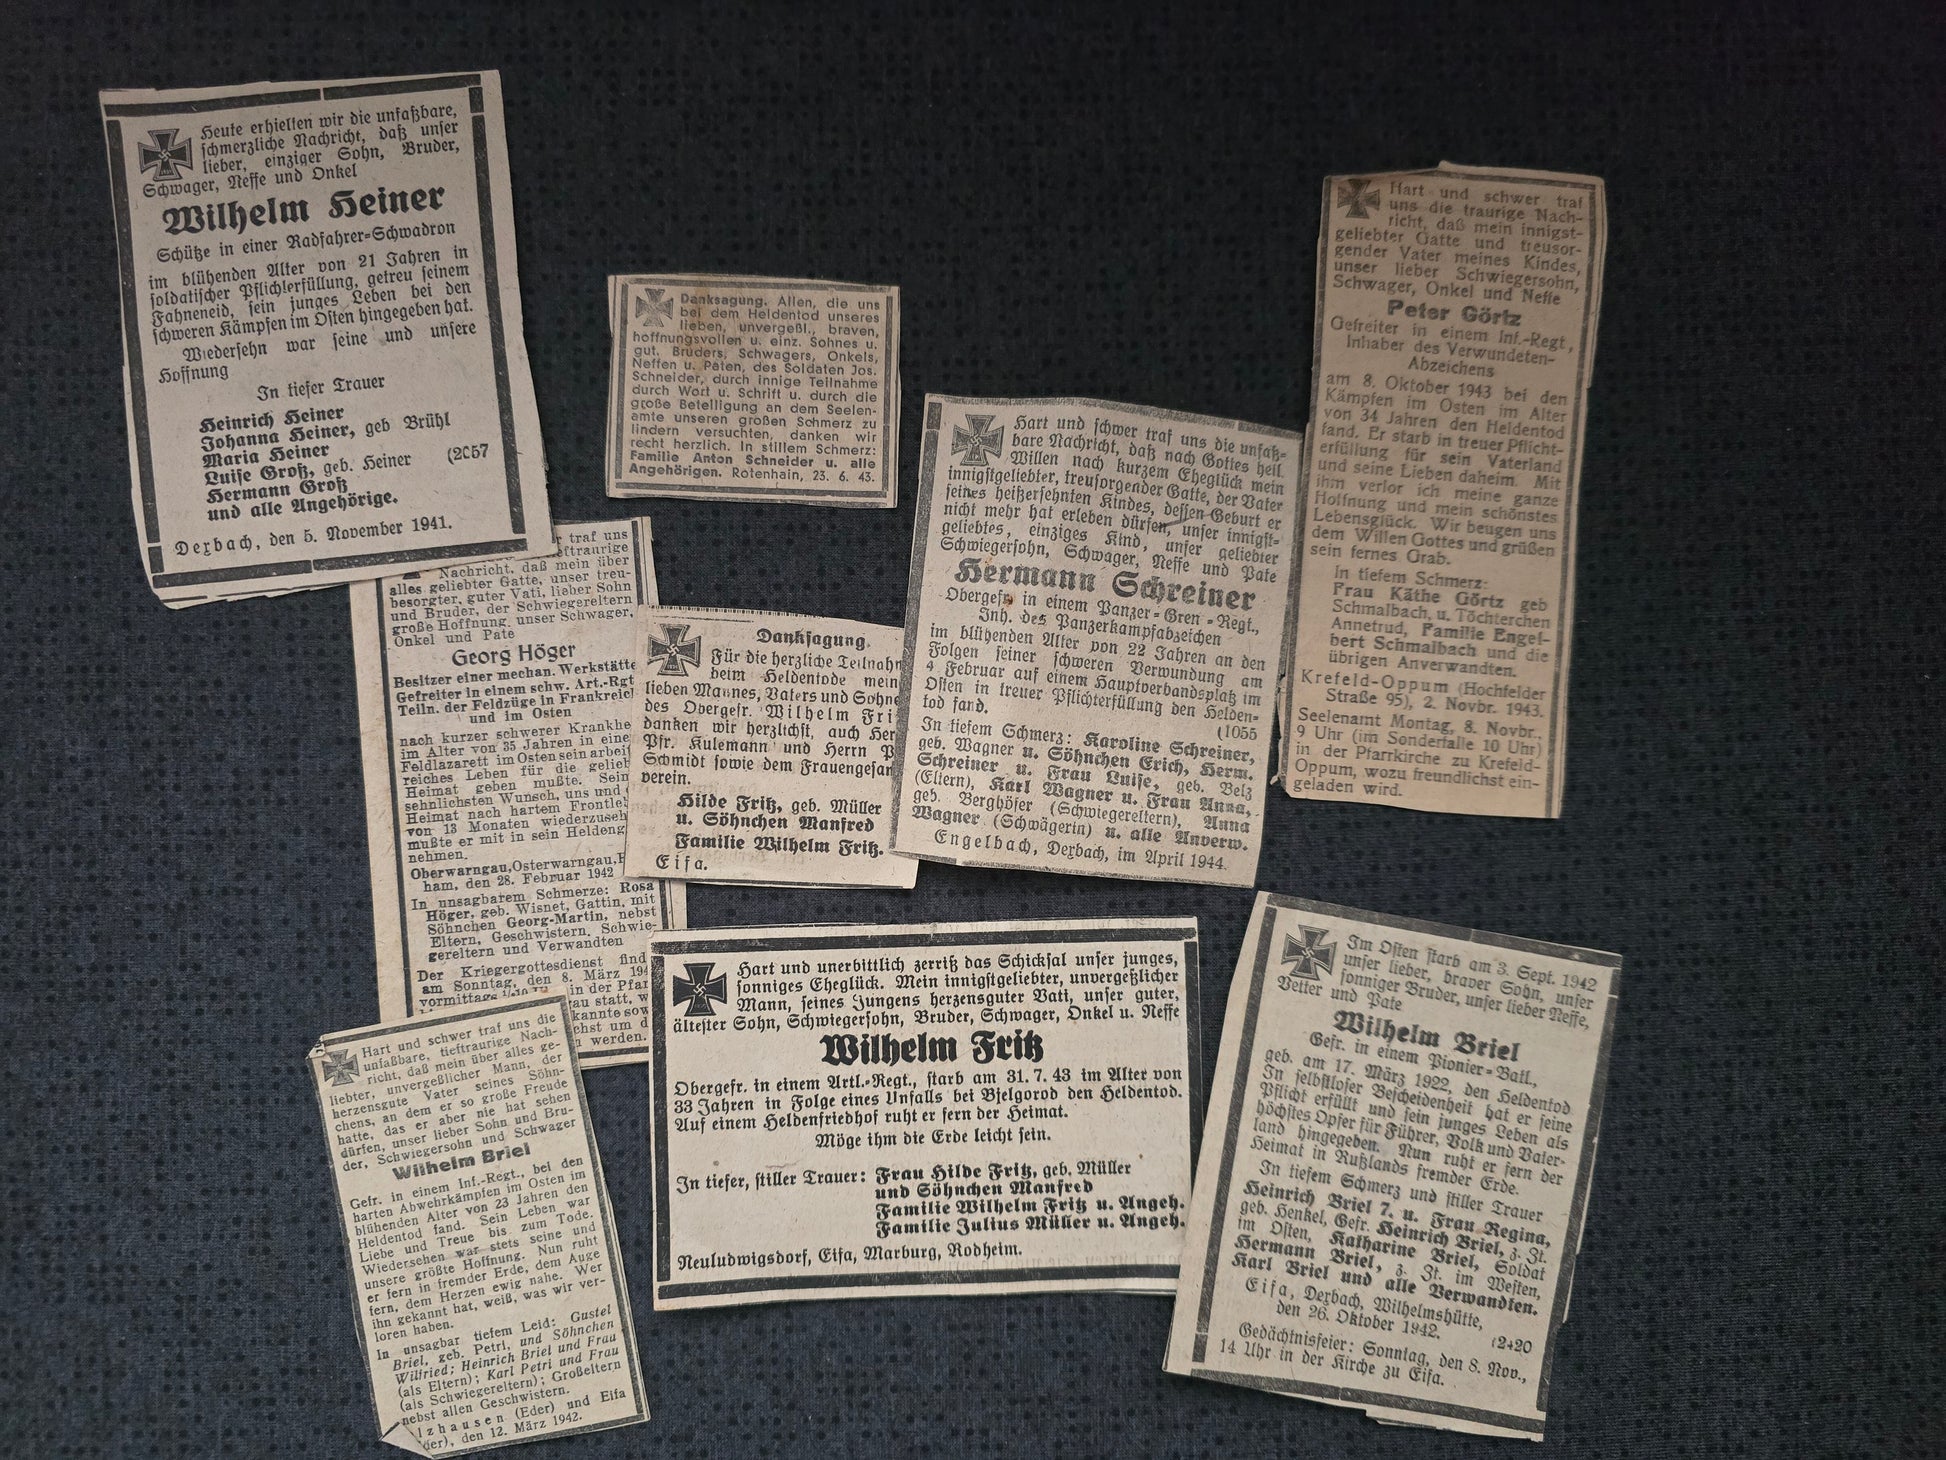 Heute erhielten wir die unfaßbare,
schmerzliche Nachricht, daß unser
lieber, einziger Sohn, Bruder,
Schwager, Neffe und Onkel
Wilhelm Heiner
Schütze in einer Radfahrer-Schwadron
im blühenden Alter von 21 Jahren in
soldatischer Pflichterfüllung, getreu seinem
Fahneneid, sein junges Leben bei den
schweren Kämpfen im Osten hingegeben hat.
Wiedersehn war seine und unsere
Hoffnung
In tiefer Trauer
Heinrich Heiner
Johanna Heiner, geb Brühl
Maria Heiner
Luise Groß, geb. Heiner (2057
Hermann Groß
und alle Angehörige.
Dexbach, den 5. November 1941.
Danksagung. Allen, die uns
bei dem Heldentod unseres
lieben, unvergeßl., braven,
hoffnungsvollen u. einz. Sohnes u.
gut. Bruders, Schwagers, Onkels,
Neffen u. Paten, des Soldaten Jos.
Schneider, durch innige Teilnahme
durch Wort u. Schrift u. durch die
große Beteiligung an dem Seelen-
amte unseren großen Schmerz zu
lindern versuchten, danken wir
recht herzlich. In stillem Schmerz:
Familie Anton Schneider u. alle
Angehörigen. Rotenhain, 23. 6. 43.
Hart und schwer traf
uns die traurige Nach-
richt, daß mein innigst-
geliebter Gatte und treusor-
gender Vater meines Kindes,
unser lieber Schwiegersohn,
Schwager, Onkel und Neffe
Peter Görtz
Gefreiter in einem Inf.-Regt,
Inhaber des Verwundeten-
Abzeichens
am 8. Oktober 1943 bei den
Kämpfen im Osten im Alter
von 34 Jahren den Heldentod
fand. Er starb in treuer Pflicht-
erfüllung für sein Vaterland
und seine Lieben daheim. Mit
ihm verlor ich meine ganze
Hoffnung und mein schönstes
Lebensglück. Wir beugen uns
dem Willen Gottes und grüßen
sein fernes Grab.
In tiefem Schmerz:
Frau Käthe Görtz geb
Schmalbach, u. Töchterchen
Annetrud, Familie Engel-
bert Schmalbach und die
übrigen Anverwandten.
Krefeld-Oppum (Hochfelder
Straße 95), 2. Novbr. 1943.
Seelenamt Montag, 8. Novbr.,
9 Uhr (im Sonderfalle 10 Uhr)
in der Pfarrkirche zu Krefeld-
Oppum, wozu freundlichst ein-
geladen wird.
Hart und schwer traf uns die unfaß-
bare Nachricht, daß nach Gottes heil.
Willen nach kurzem Eheglück mein
innigstgeliebter, treusorgender Gatte, der Vater
seines heißersehnten Kindes, dessen Geburt er
nicht mehr hat erleben dürfen, unser innigst-
geliebtes, einziges Kind, unser geliebter
Schwiegersohn, Schwager, Neffe und Pate
Hermann Schreiner
Obergefr. in einem Panzer-Gren-Regt.,
Inh. des Panzerkampfabzeichen
im blühenden Alter von 22 Jahren an den
Folgen seiner schweren Verwundung am
4 Februar auf einem Hauptverbandsplatz im
Osten in treuer Pflichterfüllung den Helden-
tod fand. (1055
In tiefem Schmerz: Karoline Schreiner,
geb. Wagner u. Söhnchen Erich, Herm.
Schreiner u. Frau Luise, geb. Belz
(Eltern), Karl Wagner u. Frau Anna,
geb. Berghöfer (Schwiegereltern), Anna
Wagner (Schwägerin) u. alle Anverw.
Engelbach, Dexbach, im April 1944.
r traf uns
eftraurige
Nachricht, daß mein über
alles geliebter Gatte, unser treu-
besorgter, guter Vati, lieber Sohn
und Bruder, der Schwiegereltern
große Hoffnung, unser Schwager,
Onkel und Pate
Georg Höger
Besitzer einer mechan. Werkstätte
Gefreiter in einem schw. Art.-Rgt
Teiln. der Feldzüge in Frankreich
und im Osten
nach kurzer schwerer Krankhe
im Alter von 35 Jahren in eine
Feldlazarett im Osten sein arbeit
reiches Leben für die gelieb
Heimat geben mußte. Sein
sehnlichsten Wunsch, uns und
Heimat nach hartem Frontle
von 13 Monaten wiederzuseh
mußte er mit in sein Heldeng
nehmen.
Oberwarngau, Osterwarngau,
ham, den 28. Februar 1942
In unsagbarem Schmerze: Rosa
Höger, geb. Wisnet, Gattin, mit
Söhnchen Georg-Martin, nebst
Eltern, Geschwistern, Schwie-
gereltern und Verwandten
Der Kriegergottesdienst find
am Sonntag, den 8. März 194
vormittags in der Pfar
au statt, w
kannte sow
chst um d
n werden.
Danksagung.
Für die herzliche Teilnahm
beim Heldentode mein
lieben Mannes, Vaters und Sohne
des Obergefr. Wilhelm Fri
danken wir herzlichst, auch Her
Pfr. Kulemann und Herrn P
Schmidt sowie dem Frauengesan
verein.
Hilde Fritz, geb. Müller
u. Söhnchen Manfred
Familie Wilhelm Fritz.
Eifa.
Hart und unerbittlich zerriß das Schicksal unser junges,
sonniges Eheglück. Mein innigstgeliebter, unvergeßlicher
Mann, seines Jungens herzensguter Vati, unser guter,
ältester Sohn, Schwiegersohn, Bruder, Schwager, Onkel u. Neffe
Wilhelm Fritz
Obergefr. in einem Artl.-Regt., starb am 31. 7. 43 im Alter von
33 Jahren in Folge eines Unfalls bei Bjelgorod den Heldentod.
Auf einem Heldenfriedhof ruht er fern der Heimat.
Möge ihm die Erde leicht sein.
In tiefer, stiller Trauer: Frau Hilde Fritz, geb. Müller
und Söhnchen Manfred
Familie Wilhelm Fritz u. Angeh.
Familie Julius Müller u. Angeh.
Neuludwigsdorf, Eifa, Marburg, Rodheim.
Im Osten starb am 3. Sept. 1942
unser lieber, braver Sohn, unser
sonniger Bruder, unser lieber Neffe,
Vetter und Pate
Wilhelm Briel
Gefr. in einem Pionier-Batl.,
geb. am 17. März 1922, den Heldentod
In selbstloser Bescheidenheit hat er seine
Pflicht erfüllt und sein junges Leben als
höchstes Opfer für Führer, Volk und Vater-
land hingegeben. Nun ruht er fern der
Heimat in Rußlands fremder Erde.
In tiefem Schmerz und stiller Trauer
Heinrich Briel 7. u. Frau Regina,
geb. Henkel, Gefr. Heinrich Briel, z. Zt.
im Osten, Katharine Briel, Soldat
Hermann Briel, z. Zt. im Westen,
Karl Briel und alle Verwandten.
Eifa, Dexbach, Wilhelmshütte,
den 26. Oktober 1942. (2420
Gedächtnisfeier: Sonntag, den 8. Nov.,
14 Uhr in der Kirche zu Eifa.
Hart und schwer traf uns die
unfaßbare, tieftraurige Nach-
richt, daß mein über alles ge-
liebter, unvergeßlicher Mann, der
herzensgute Vater seines Söhn-
chens, an dem er so große Freude
hatte, das er aber nie hat sehen
dürfen, unser lieber Sohn und Bru-
der, Schwiegersohn und Schwager
Wilhelm Briel
Gefr. in einem Inf.-Regt., bei den
harten Abwehrkämpfen im Osten im
blühenden Alter von 23 Jahren den
Heldentod fand. Sein Leben war
Liebe und Treue bis zum Tode.
Wiedersehen war stets seine und
unsere größte Hoffnung. Nun ruht
er fern in fremder Erde, dem Auge
fern, dem Herzen ewig nahe. Wer
ihn gekannt hat, weiß, was wir ver-
loren haben.
In unsagbar tiefem Leid: Gustel
Briel, geb. Petri, und Söhnchen
Wilfried; Heinrich Briel und Frau
(als Eltern); Karl Petri und Frau
(als Schwiegereltern); Großeltern
nebst allen Geschwistern.
lzhausen (Eder) und Eifa
der), den 12. März 1942.